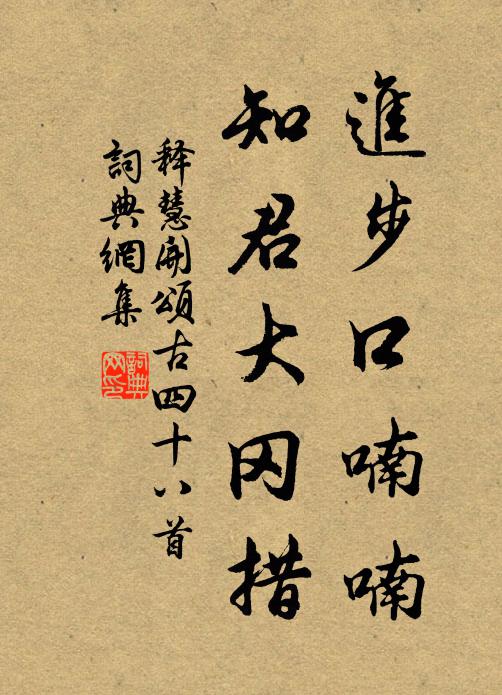 進步口喃喃
知君大罔措
释慧開頌古四十八首
詞典網集
詞典网印